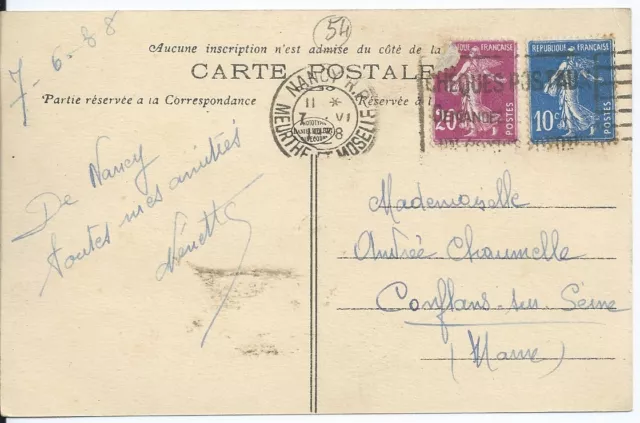 54
Aucune inscription n'est admise du côté de la
CARTE POSTALE
Partie réservée a la Correspondance
Réservée à l
7-6-28
De Nancy
toutes mes amitiés
NANCY R.P.
11 *
7 VI
28
MEURTHE ET MOSELLE
CHEQUES POSTAUX
DEMANDEZ
FRANÇAISE
20c
POSTES
REPUBLIQUE FRANÇAISE
10c
POSTES
Mademoiselle
Andrée Chaumelle
Conflans-sur-Seine
(Marne)